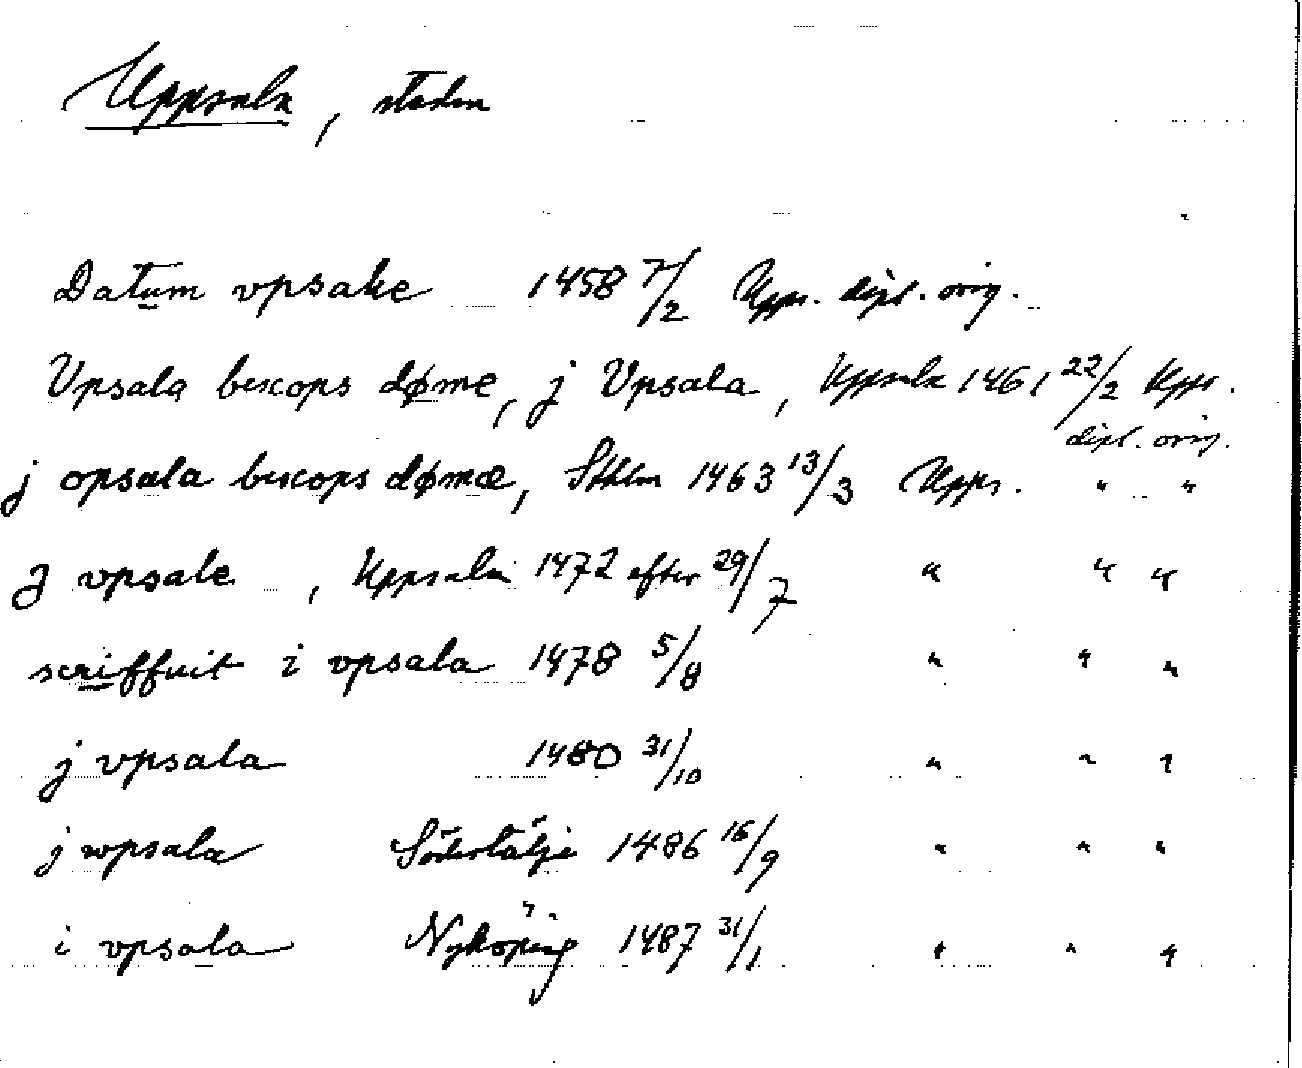 Uppsala, staden
Datum vpsale 1458 7/2 Upps. dipl. orig.
Vpsala bixcops dømę, j Vpsala, Uppsala 1461 22/2 Upps. dipl. orig.
j opsala biscops dømæ, Sthlm 1463 13/3 Upps. " "
J vpsale, Uppsala 1472 efter 29/7 " " "
scriffuit i vpsala 1478 5/8 " " "
j vpsala 1480 31/10 " " "
j wpsala Södertälje 1486 16/9 " " "
i vpsala Nyköping 1487 31/1 " " "